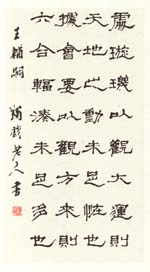 處璇璣以觀大運則
天地之動未足怪也
據會要以觀方來則
六合輻湊未足多也
王輔嗣 蠲戲老人書